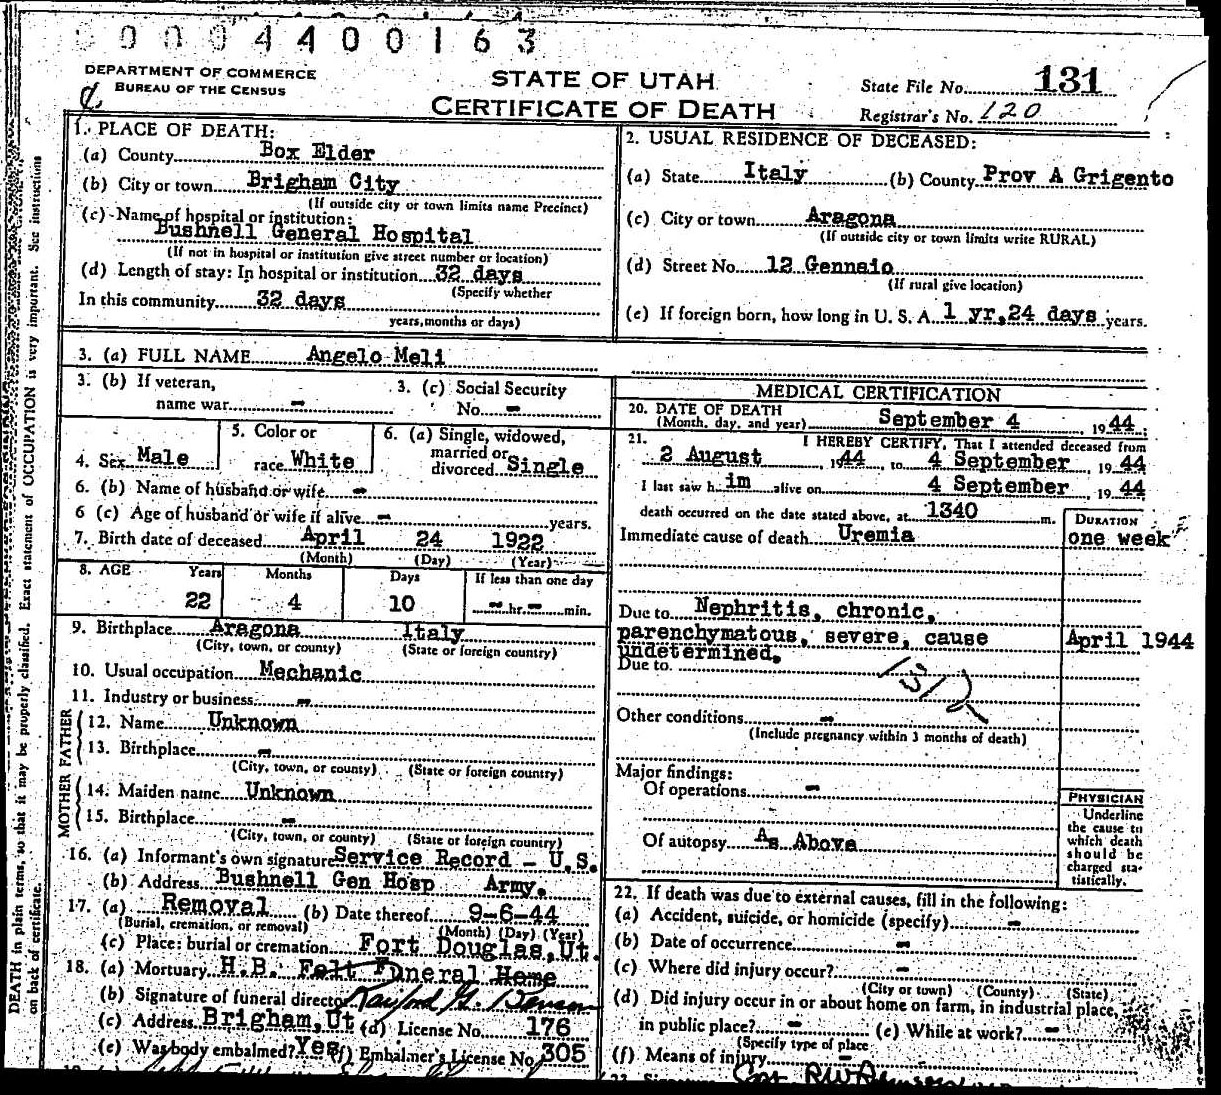 0004400163
DEPARTMENT OF COMMERCE
BUREAU OF THE CENSUS
STATE OF UTAH
CERTIFICATE OF DEATH
State File No. 131
Registrar's No. 120
1. PLACE OF DEATH:
(a) County Box Elder
(b) City or town Brigham City
(If outside city or town limits name Precinct)
(c) Name of hospital or institution:
Bushnell General Hospital
(If not in hospital or institution give street number or location)
(d) Length of stay: In hospital or institution 32 days
(Specify whether
In this community 32 days
years, months or days)
2. USUAL RESIDENCE OF DECEASED:
(a) State Italy (b) County Prov A Grigento
(c) City or town Aragona
(If outside city or town limits write RURAL)
(d) Street No. 12 Gennaio
(If rural give location)
(e) If foreign born, how long in U. S. A. 1 yr, 24 days years.
3. (a) FULL NAME Angelo Meli
3. (b) If veteran,
name war -
3. (c) Social Security
No. -
4. Sex Male
5. Color or
race White
6. (a) Single, widowed,
married or
divorced Single
6. (b) Name of husband or wife -
6 (c) Age of husband or wife if alive - years.
7. Birth date of deceased April 24 1922
(Month) (Day) (Year)
8. AGE Years Months Days If less than one day
22 4 10 - hr. - min.
9. Birthplace Aragona Italy
(City, town, or county) (State or foreign country)
10. Usual occupation Mechanic
11. Industry or business -
FATHER
12. Name Unknown
13. Birthplace -
(City, town, or county) (State or foreign country)
MOTHER
14. Maiden name Unknown
15. Birthplace -
(City, town, or county) (State or foreign country)
16. (a) Informant's own signature Service Record - U.S.
(b) Address Bushnell Gen Hosp Army.
17. (a) Removal (b) Date thereof 9-6-44
(Burial, cremation, or removal) (Month) (Day) (Year)
(c) Place: burial or cremation Fort Douglas, Ut.
18. (a) Mortuary H.B. Felt Funeral Home
(b) Signature of funeral director
(c) Address Brigham, Ut (d) License No. 176
(e) Was body embalmed? Yes (f) Embalmer's License No. 305
MEDICAL CERTIFICATION
20. DATE OF DEATH
(Month, day, and year) September 4 1944.
21. I HEREBY CERTIFY, That I attended deceased from
2 August, 1944, to 4 September, 1944
I last saw him alive on 4 September, 1944
death occurred on the date stated above, at 1340 m.
DURATION
Immediate cause of death Uremia one week
Due to Nephritis, chronic,
parenchymatous, severe, cause April 1944
undetermined.
Due to
131 2
Other conditions -
(Include pregnancy within 3 months of death)
Major findings:
Of operations -
Of autopsy As Above
PHYSICIAN
Underline
the cause to
which death
should be
charged sta-
tistically.
22. If death was due to external causes, fill in the following:
(a) Accident, suicide, or homicide (specify) -
(b) Date of occurrence -
(c) Where did injury occur? -
(City or town) (County) (State)
(d) Did injury occur in or about home on farm, in industrial place,
in public place? - (e) While at work? -
(Specify type of place
(f) Means of injury -
DEATH in plain terms, so that it may be properly classified. Exact statement of OCCUPATION is very important. See instructions
on back of certificate.